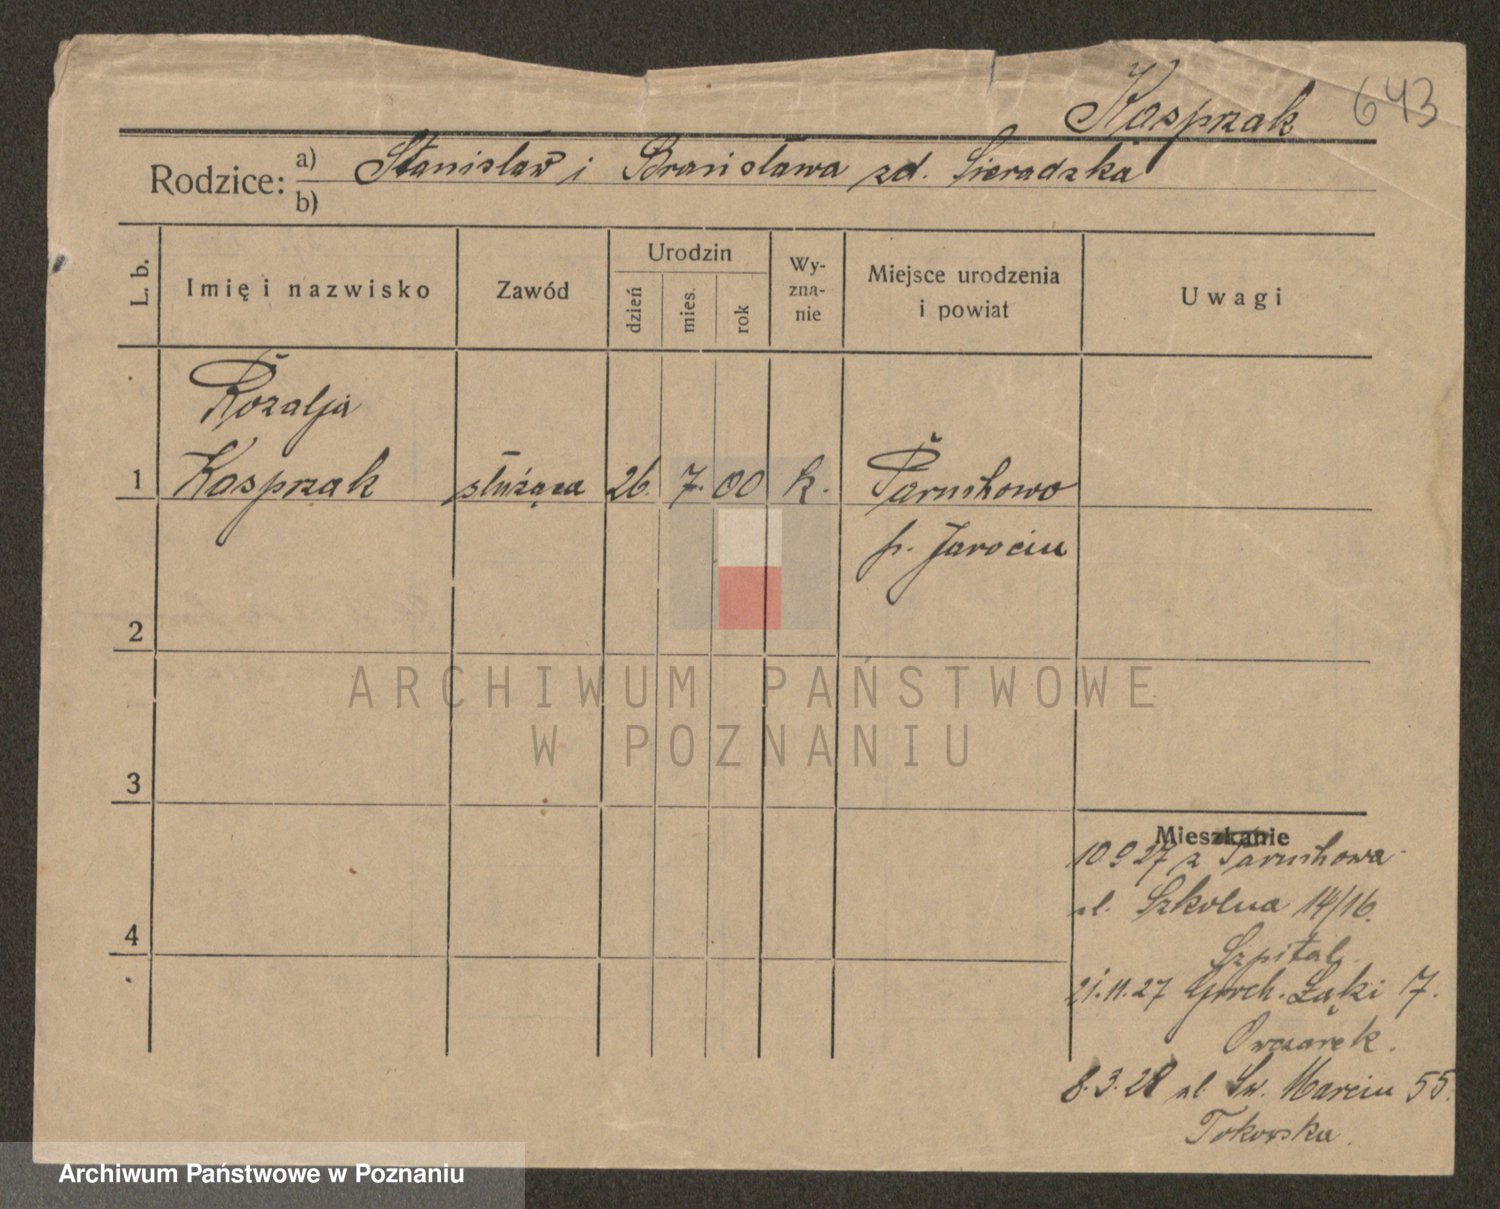 Kasprzak 643
Rodzice: a) Stanisław i Bronisława zd. Sieradzka
b)
L. b. Imię i nazwisko Zawód Urodzin dzień mies. rok Wyznanie Miejsce urodzenia i powiat Uwagi
Rozalja
1 Kasprzak służąca 26. 7. 00 k. Taruchowo
p. Jarocin
2
3
4
Mieszkanie
10 9 27 z Taruchowa
ul. Szkolna 14/16.
Szpital.
21.11.27 Groch. Łąki 7.
Owczarek.
8.3.28 ul. Św. Marcin 55.
ARCHIWUM PAŃSTWOWE
W POZNANIU
Archiwum Państwowe w Poznaniu